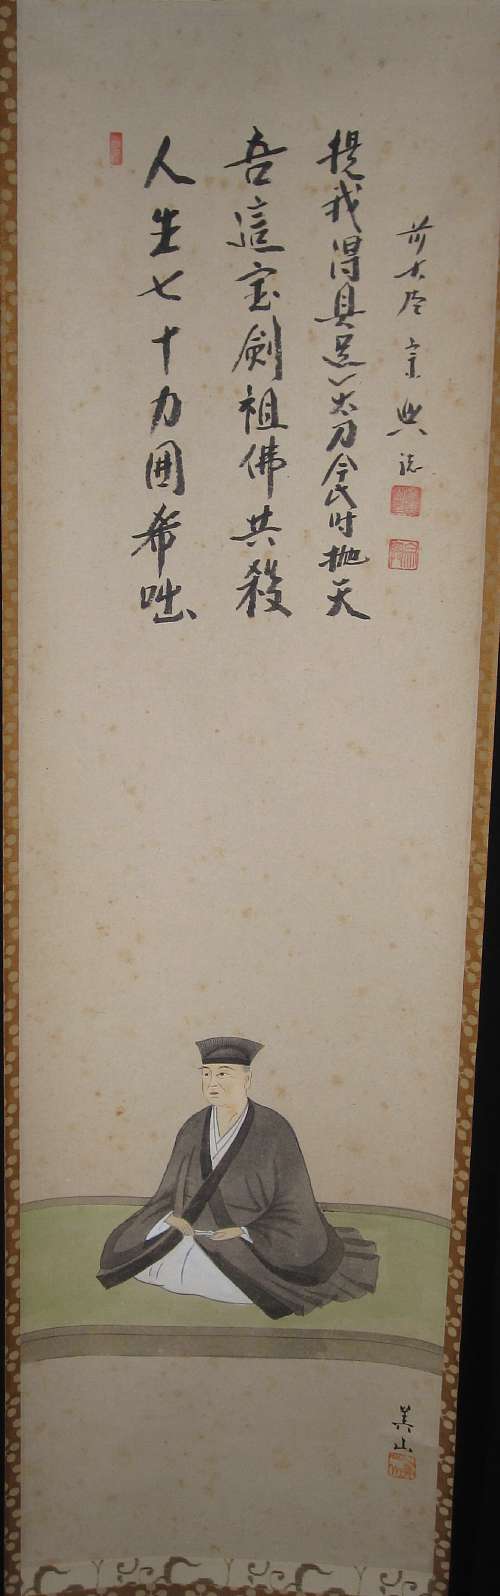 人生七十力囲希咄
吾這宝劍祖佛共殺
提我得具足一太刀今此时抛天
前大德 宗興 誌
美山